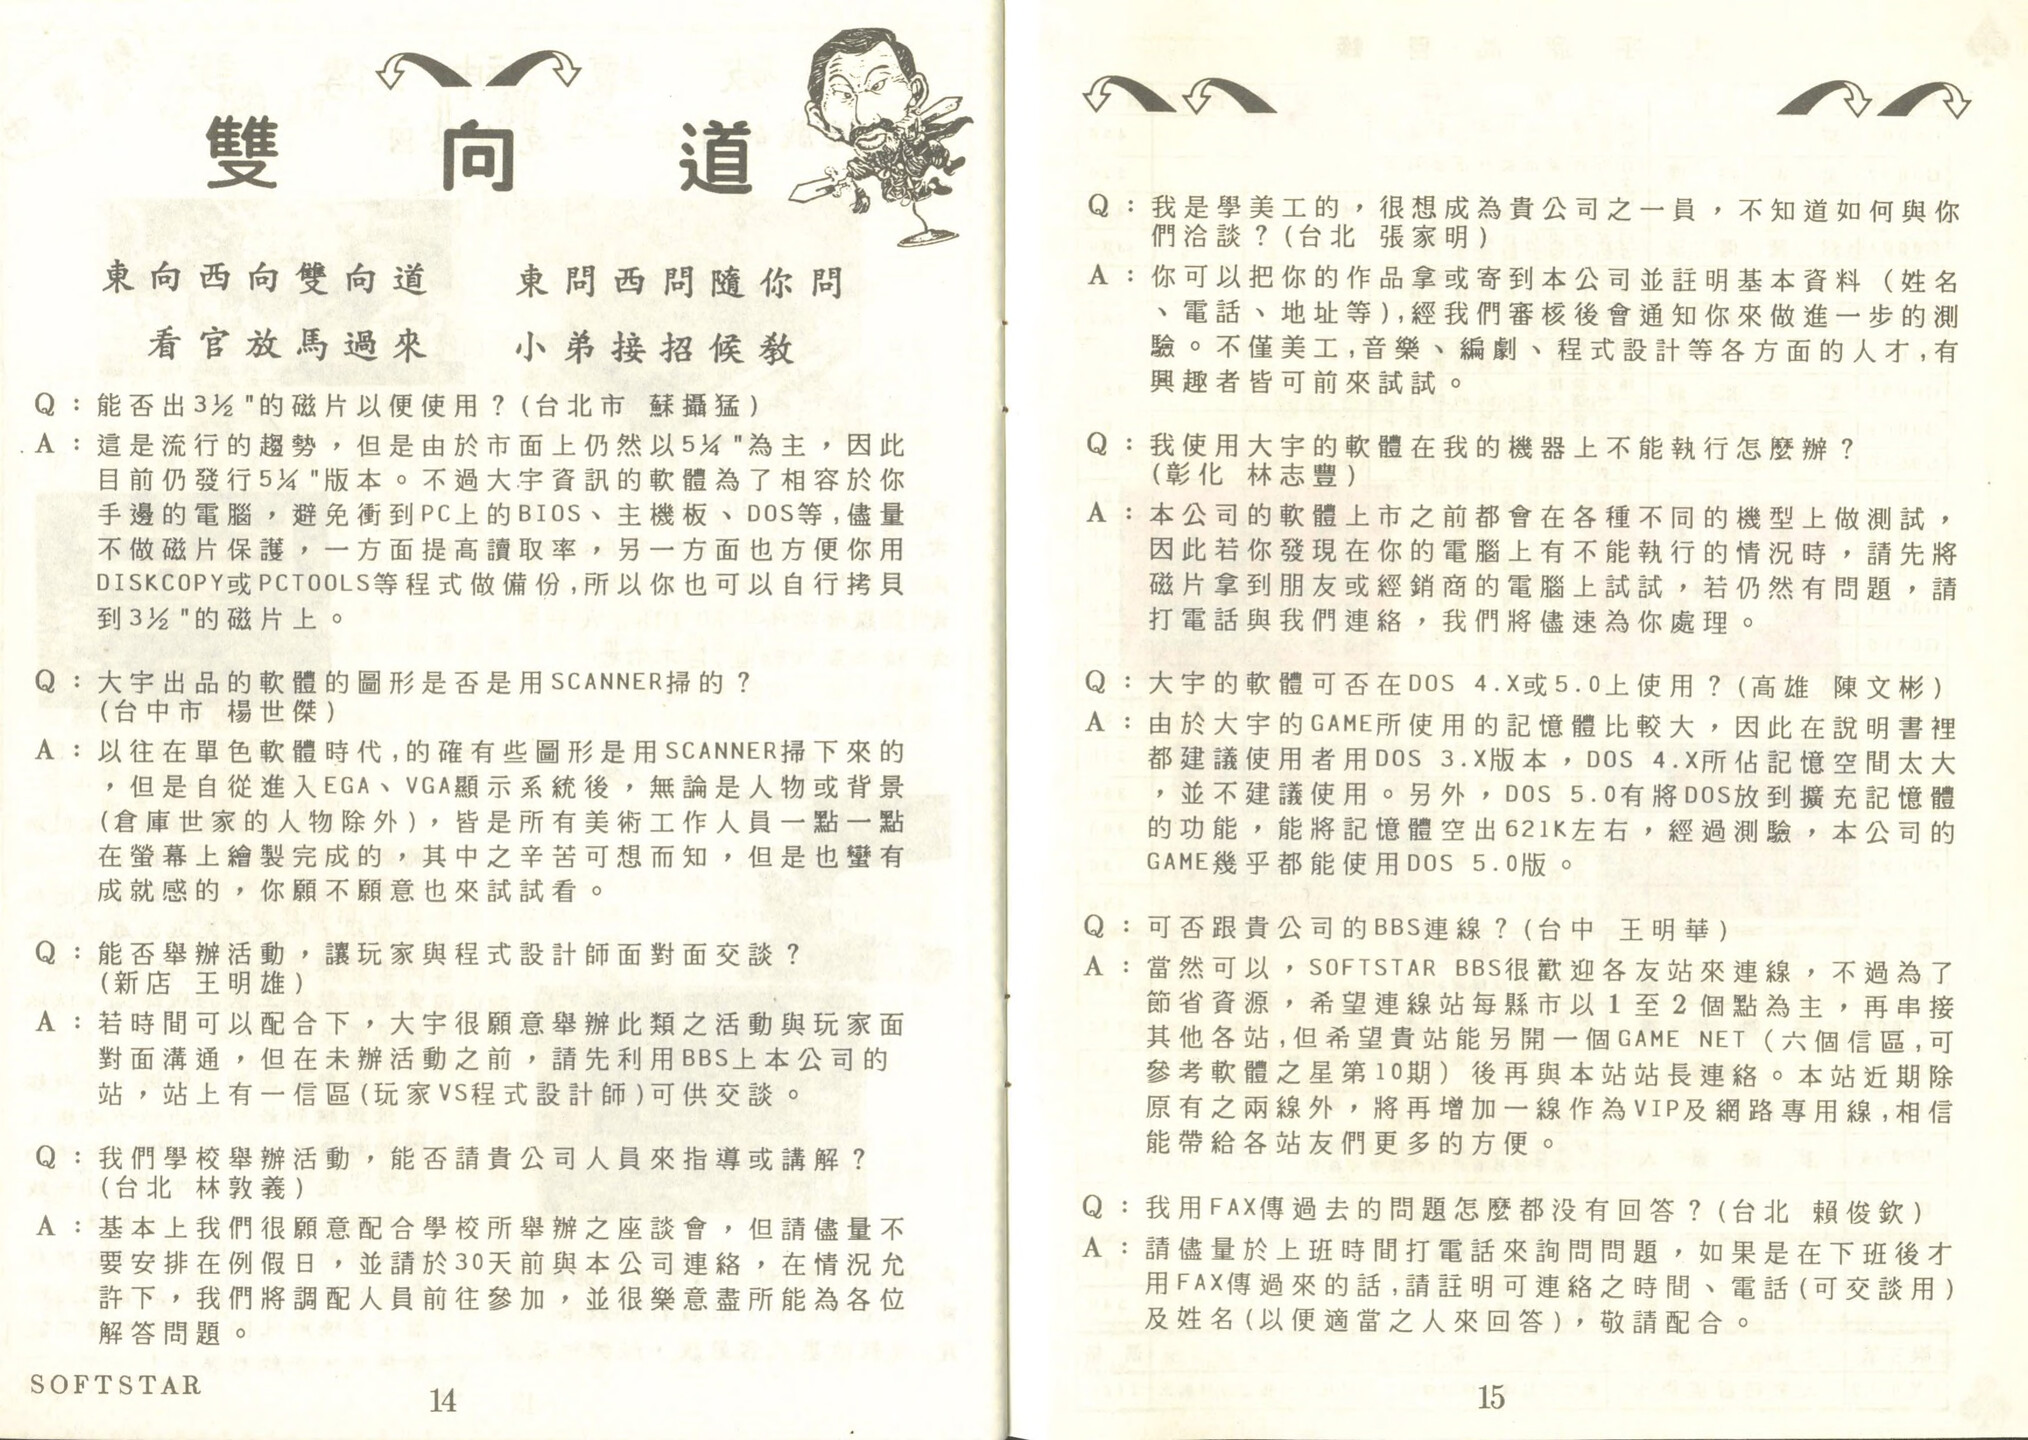 雙向道
東向西向雙向道　東問西問隨你問
看官放馬過來　小弟接招候教
Q：能否出3½"的磁片以便使用？(台北市 蘇攝猛)
A：這是流行的趨勢，但是由於市面上仍然以5¼"為主，因此
目前仍發行5¼"版本。不過大宇資訊的軟體為了相容於你
手邊的電腦，避免衝到PC上的BIOS、主機板、DOS等,儘量
不做磁片保護，一方面提高讀取率，另一方面也方便你用
DISKCOPY或PCTOOLS等程式做備份,所以你也可以自行拷貝
到3½"的磁片上。
Q：大宇出品的軟體的圖形是否是用SCANNER掃的？
(台中市 楊世傑)
A：以往在單色軟體時代,的確有些圖形是用SCANNER掃下來的
，但是自從進入EGA、VGA顯示系統後，無論是人物或背景
(倉庫世家的人物除外)，皆是所有美術工作人員一點一點
在螢幕上繪製完成的，其中之辛苦可想而知，但是也蠻有
成就感的，你願不願意也來試試看。
Q：能否舉辦活動，讓玩家與程式設計師面對面交談？
(新店 王明雄)
A：若時間可以配合下，大宇很願意舉辦此類之活動與玩家面
對面溝通，但在未辦活動之前，請先利用BBS上本公司的
站，站上有一信區(玩家VS程式設計師)可供交談。
Q：我們學校舉辦活動，能否請貴公司人員來指導或講解？
(台北 林敦義)
A：基本上我們很願意配合學校所舉辦之座談會，但請儘量不
要安排在例假日，並請於30天前與本公司連絡，在情況允
許下，我們將調配人員前往參加，並很樂意盡所能為各位
解答問題。
SOFTSTAR
14
Q：我是學美工的，很想成為貴公司之一員，不知道如何與你
們洽談？(台北 張家明)
A：你可以把你的作品拿或寄到本公司並註明基本資料（姓名
、電話、地址等),經我們審核後會通知你來做進一步的測
驗。不僅美工,音樂、編劇、程式設計等各方面的人才,有
興趣者皆可前來試試。
Q：我使用大宇的軟體在我的機器上不能執行怎麼辦？
(彰化 林志豐)
A：本公司的軟體上市之前都會在各種不同的機型上做測試，
因此若你發現在你的電腦上有不能執行的情況時，請先將
磁片拿到朋友或經銷商的電腦上試試，若仍然有問題，請
打電話與我們連絡，我們將儘速為你處理。
Q：大宇的軟體可否在DOS 4.X或5.0上使用？(高雄 陳文彬)
A：由於大宇的GAME所使用的記憶體比較大，因此在說明書裡
都建議使用者用DOS 3.X版本，DOS 4.X所佔記憶空間太大
，並不建議使用。另外，DOS 5.0有將DOS放到擴充記憶體
的功能，能將記憶體空出621K左右，經過測驗，本公司的
GAME幾乎都能使用DOS 5.0版。
Q：可否跟貴公司的BBS連線？(台中 王明華)
A：當然可以，SOFTSTAR BBS很歡迎各友站來連線，不過為了
節省資源，希望連線站每縣市以1至2個點為主，再串接
其他各站,但希望貴站能另開一個GAME NET（六個信區,可
參考軟體之星第10期）後再與本站站長連絡。本站近期除
原有之兩線外，將再增加一線作為VIP及網路專用線,相信
能帶給各站友們更多的方便。
Q：我用FAX傳過去的問題怎麼都没有回答？(台北 賴俊欽)
A：請儘量於上班時間打電話來詢問問題，如果是在下班後才
用FAX傳過來的話,請註明可連絡之時間、電話(可交談用)
及姓名(以便適當之人來回答)，敬請配合。
15